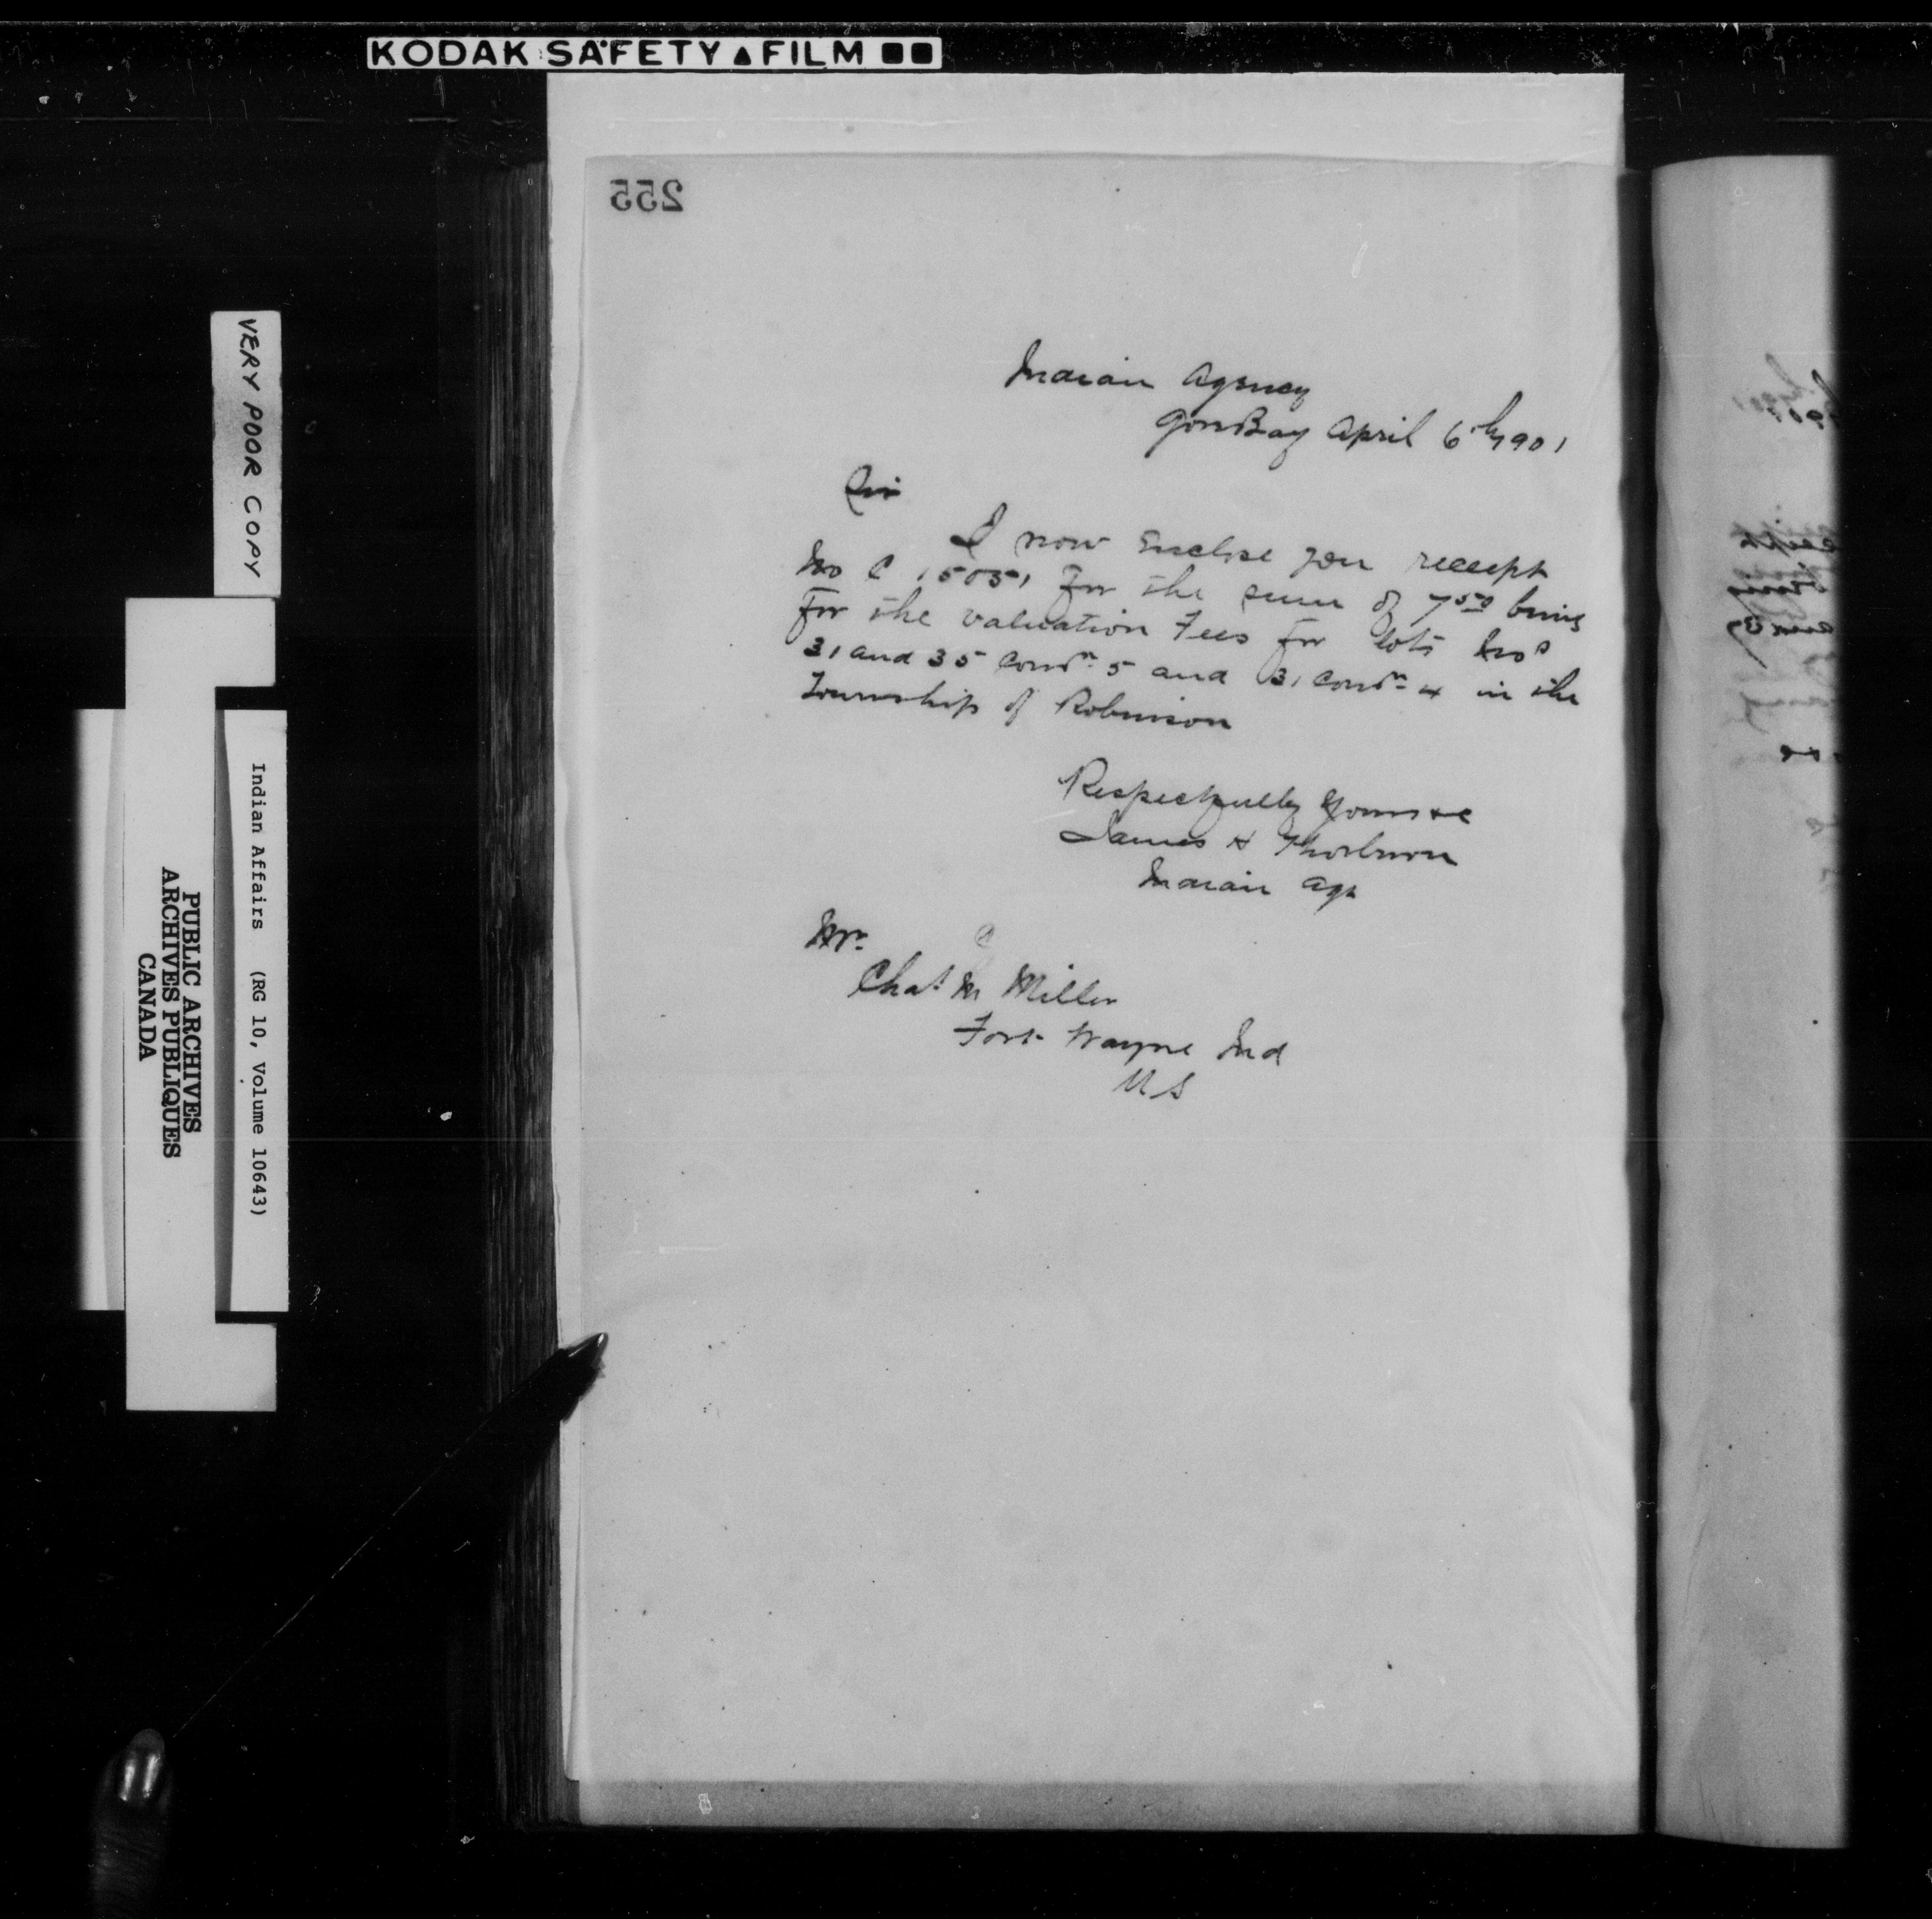 KODAK SAFETY ▲ FILM ■■
255
Indian Agency
Gore Bay April 6th 1901
Sir
I now Enclose you receipt
No C 15051 for the sum of 7 50 being
for the valuation Fees for lots Nos
31 and 35 Conn 5 and 31 Conn 4 in the
Township of Robinson
Respectfully Yours &c
James H Thorburn
Indian Agt
Mr.
Chas M Miller
Fort Wayne Ind
US
VERY POOR COPY
Indian Affairs (RG 10, Volume 10643)
PUBLIC ARCHIVES
ARCHIVES PUBLIQUES
CANADA